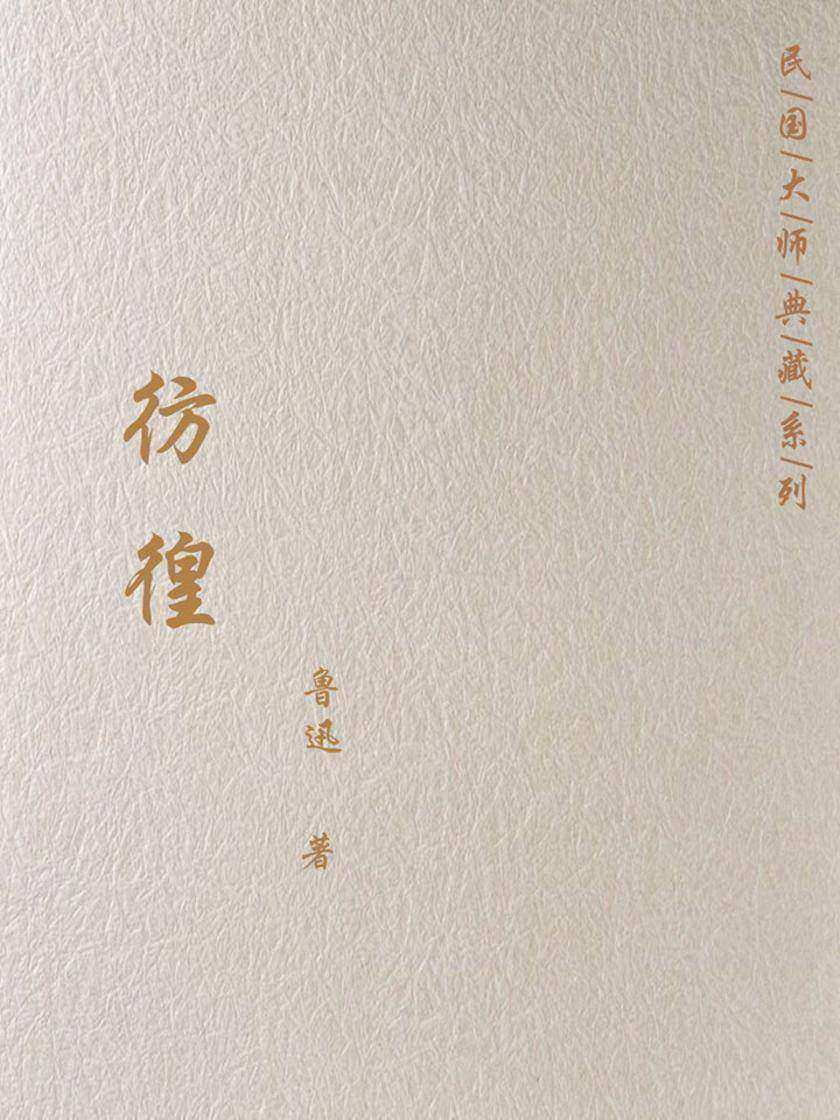 民/国/大/师/典/藏/系/列
彷徨
鲁迅 著